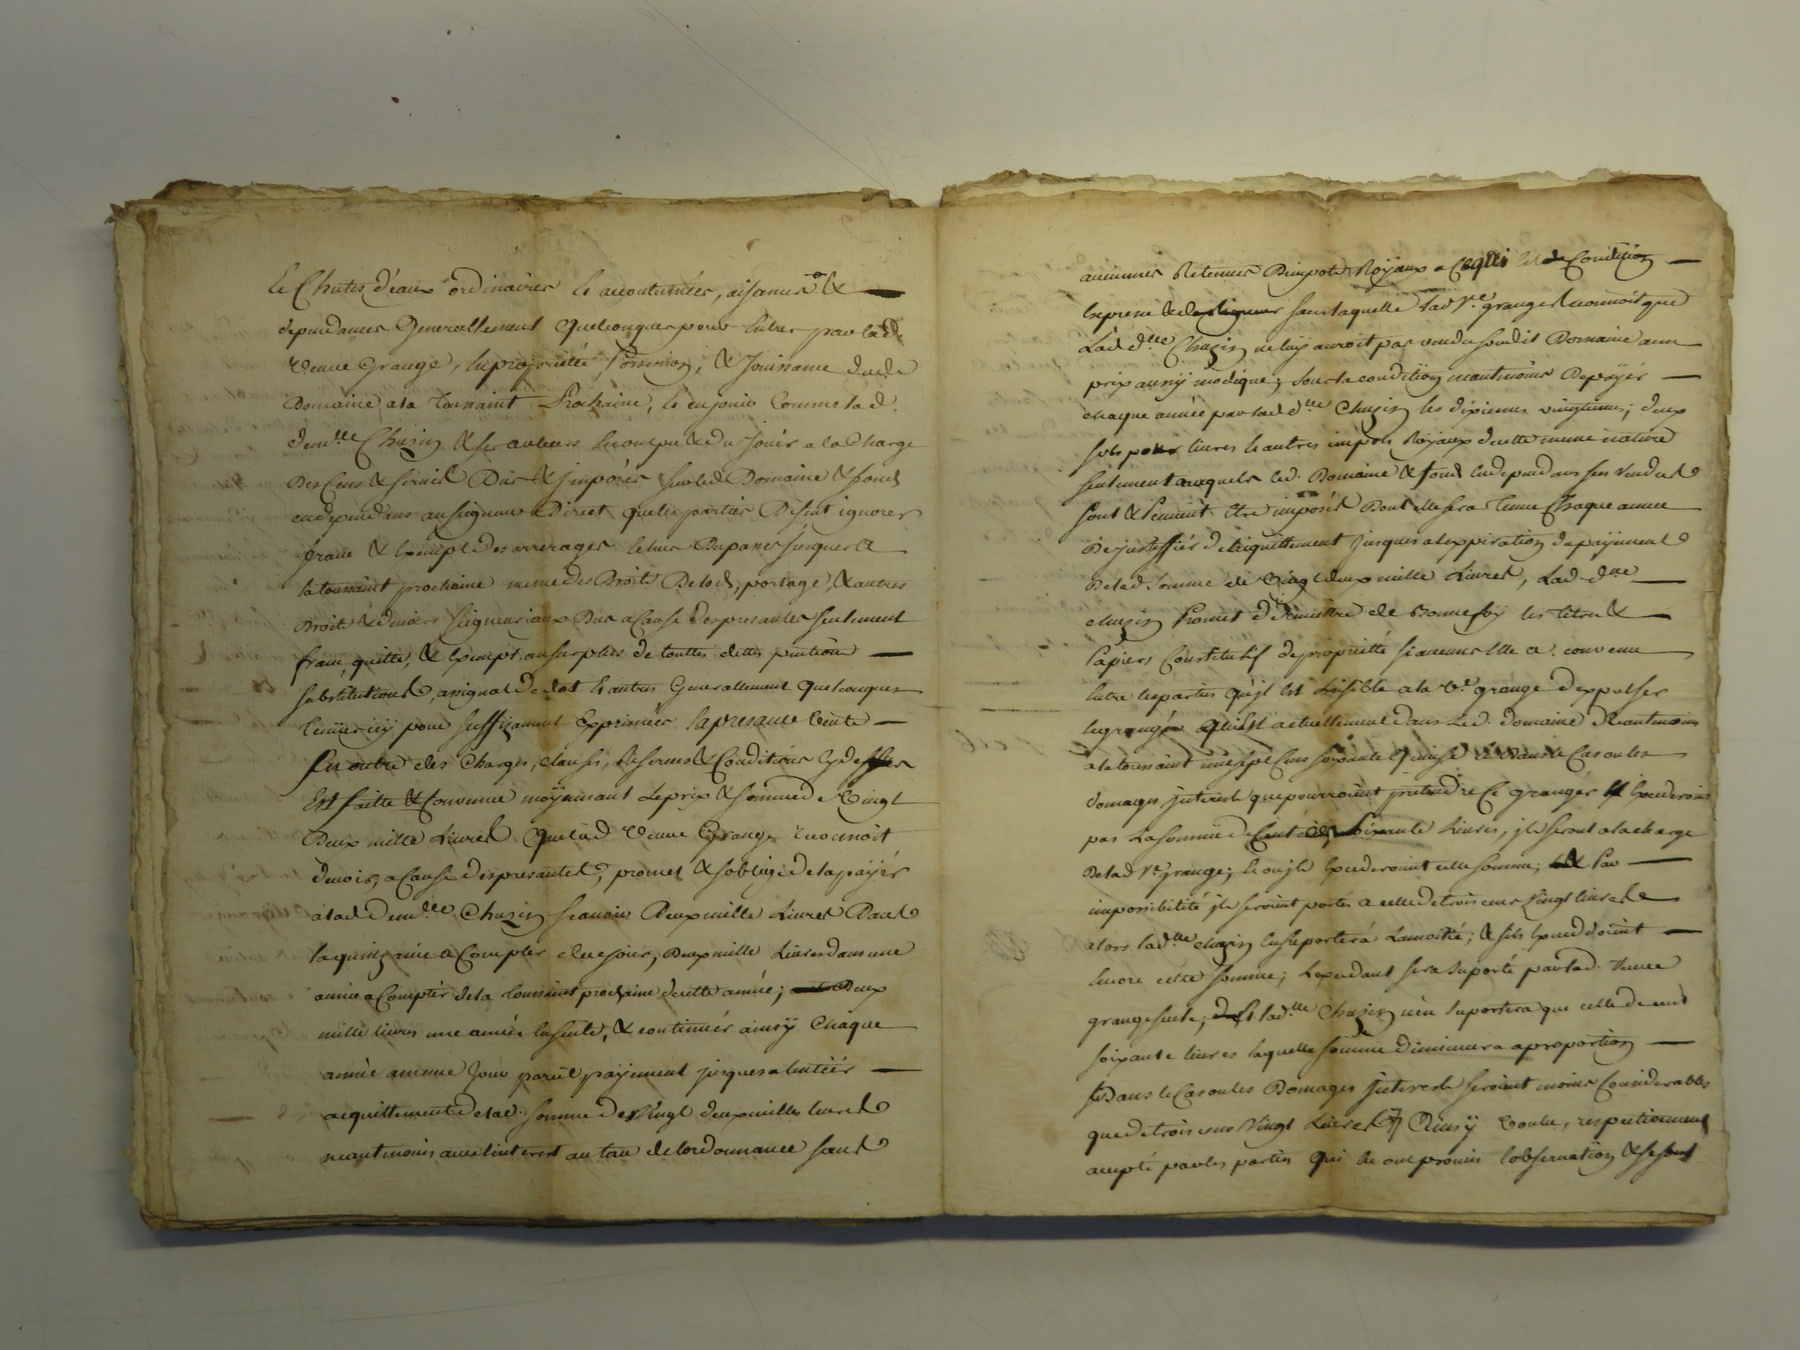 Et Chutes d'eaux ordinaires et accoutumées, aisances &
dependances Generallement Quelconques pour Entrer par lade
Veuve Grange, En propriété, possession, & Jouissance dude
Domaine a la Toussaint Prochaine, et en jouir Comme lad.
demlle Chuzin & ses auteurs En ont pu & du Jouir a la Charge
Des Cens & servis Dus & imposés sur led Domaine & fonds
endependans au seigneur Direct que les parties Disent ignorer
franc & Exempt des arrerages Echus Du passé jusques a
la toussaint prochaine meme des Droits De lods, portage, & autres
Droits & devoirs seigneuriaux Dus a Cause des presantes seulement
franc, quitte, & Exempt au surplus de touttes dettes pention
substitutions, assignal de dot et autres Generallement quelconques
Tenus icy pour suffisament Exprimés la presante Vente
En outre des Charges, clauses, Reserves & Conditions Cy dessus
Est faitte & Convenue moÿennant Le prix & somme de Vingt
Deux mille Livres Que lad Veuve Grange reconnoit
devoir, a Cause des presantes, promet & s'oblige de la payér
a lad demlle Chuzin scavoir Deux mille Livres Dans
la quinzaine a Compter de ce jour, Deux mille Livres dans une
année a Comptér de la Toussaint prochaine de cette année; Deux
mille livres une année Ensuite, & continuér ainsÿ Chaque
année a meme Jour pareil paÿement jusques a Entiér
acquittement de lad. somme de Vingt deux milles livres
neantmoins avec l'interest au taux de l'ordonnance sans
aucunes Retenues D'impots Royaux a Ce qui est de Condition
Expresse & de rigueur sans laquelle lad Ve grange Reconnoit que
Lad dlle Chuzin ne luy auroit pas vendu sondit Domaine a un
prix aussy modique; sous la condition neantmoins De payér
chaque année par lad dlle Chuzin les dixiemes vingtiemes; deux
sols pour livres et autres impots Royaux de cette meme nature
seulement auxquels led. Domaine & fonds En dependans sus Vendus
sont & seroient Etre imposés Dont elle sera Tenue Chaque année
De justiffiér de l'aquittement jusques a l'expiration du paÿement
De lad Somme de Vingt deux mille Livres, Lad dlle
chuzin Promet de Remettre de Bonne foÿ les titres &
Papiers Constitutif de propriété si aucuns Elle a. convenu
Entre les parties qu'il est Loisible a la Ve grange d'expulser
le grangér qui Est actuellement dans Led. domaine Neantmoins
a la toussaint mil sept Cens soixante Et quinze & dans le Cas ou les
domages interets que pourroient pretendre Ce grangér N'Exederoint
pas La somme de Cent soixante Livres, ils seront a la charge
De lad Ve grange; Et ou ils Exederoint cette somme; & Par
impossibilité ils seroint portés a celle de trois cens Vingt livres
alors lad dlle chuzin En suportera La moitié; & s'ils Excedoint
Encore cette somme; L'exedant sera suporté par lad. Veuve
grange seule; & lad dlle Chuzin n'en suportera que celle de cent
soixante livres laquelle somme diminuera a proportion
Dans le Cas ou les Domages interets seroint moins Considerables
que de trois cens Vingt Livres Ainsÿ Voulu, respectivement
accepté par les parties Qui En ont promis l'observation & se sont